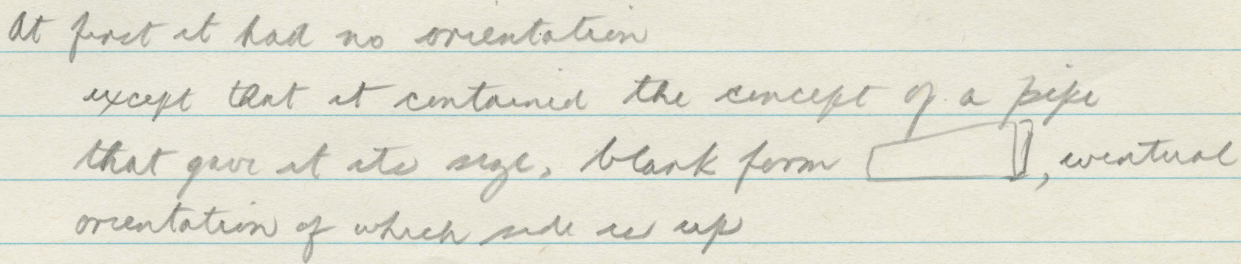 At first it had no orientation
except that it contained the concept of a pipe
that gave it its size, blank form , eventual
orientation of which side is up